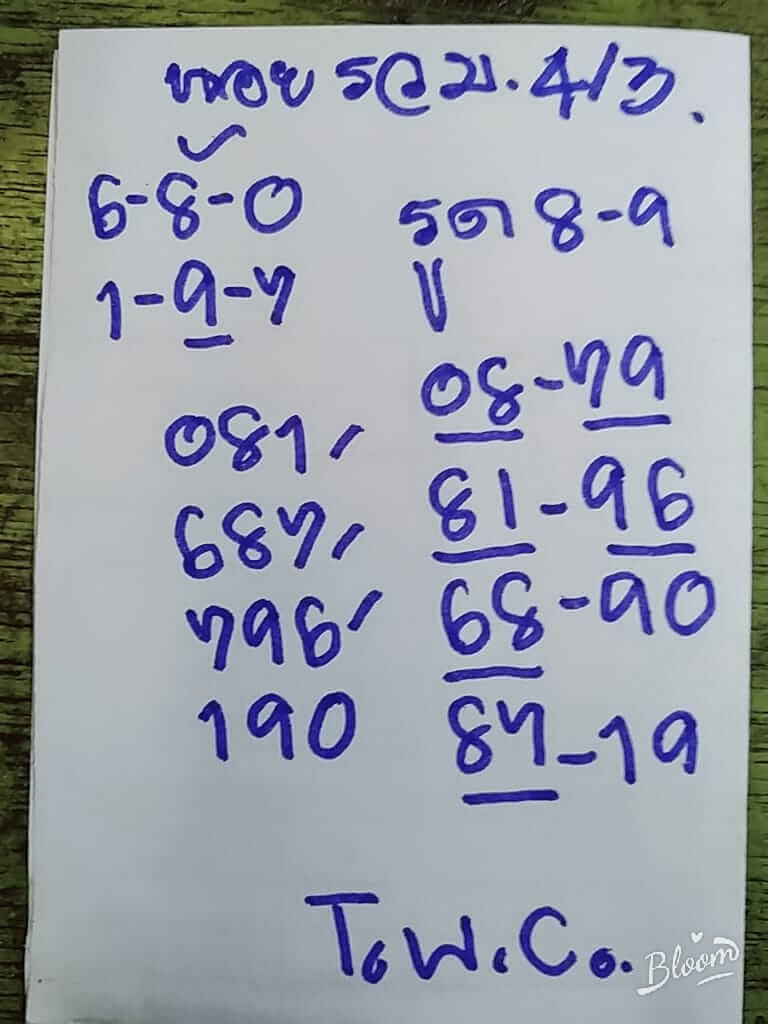 หวย รวม. 4/3.
6-8-0
1-9-7
รูด 8-9
081
687
796
190
08-79
81-96
68-90
87-19
T.W.Co.
Bloom